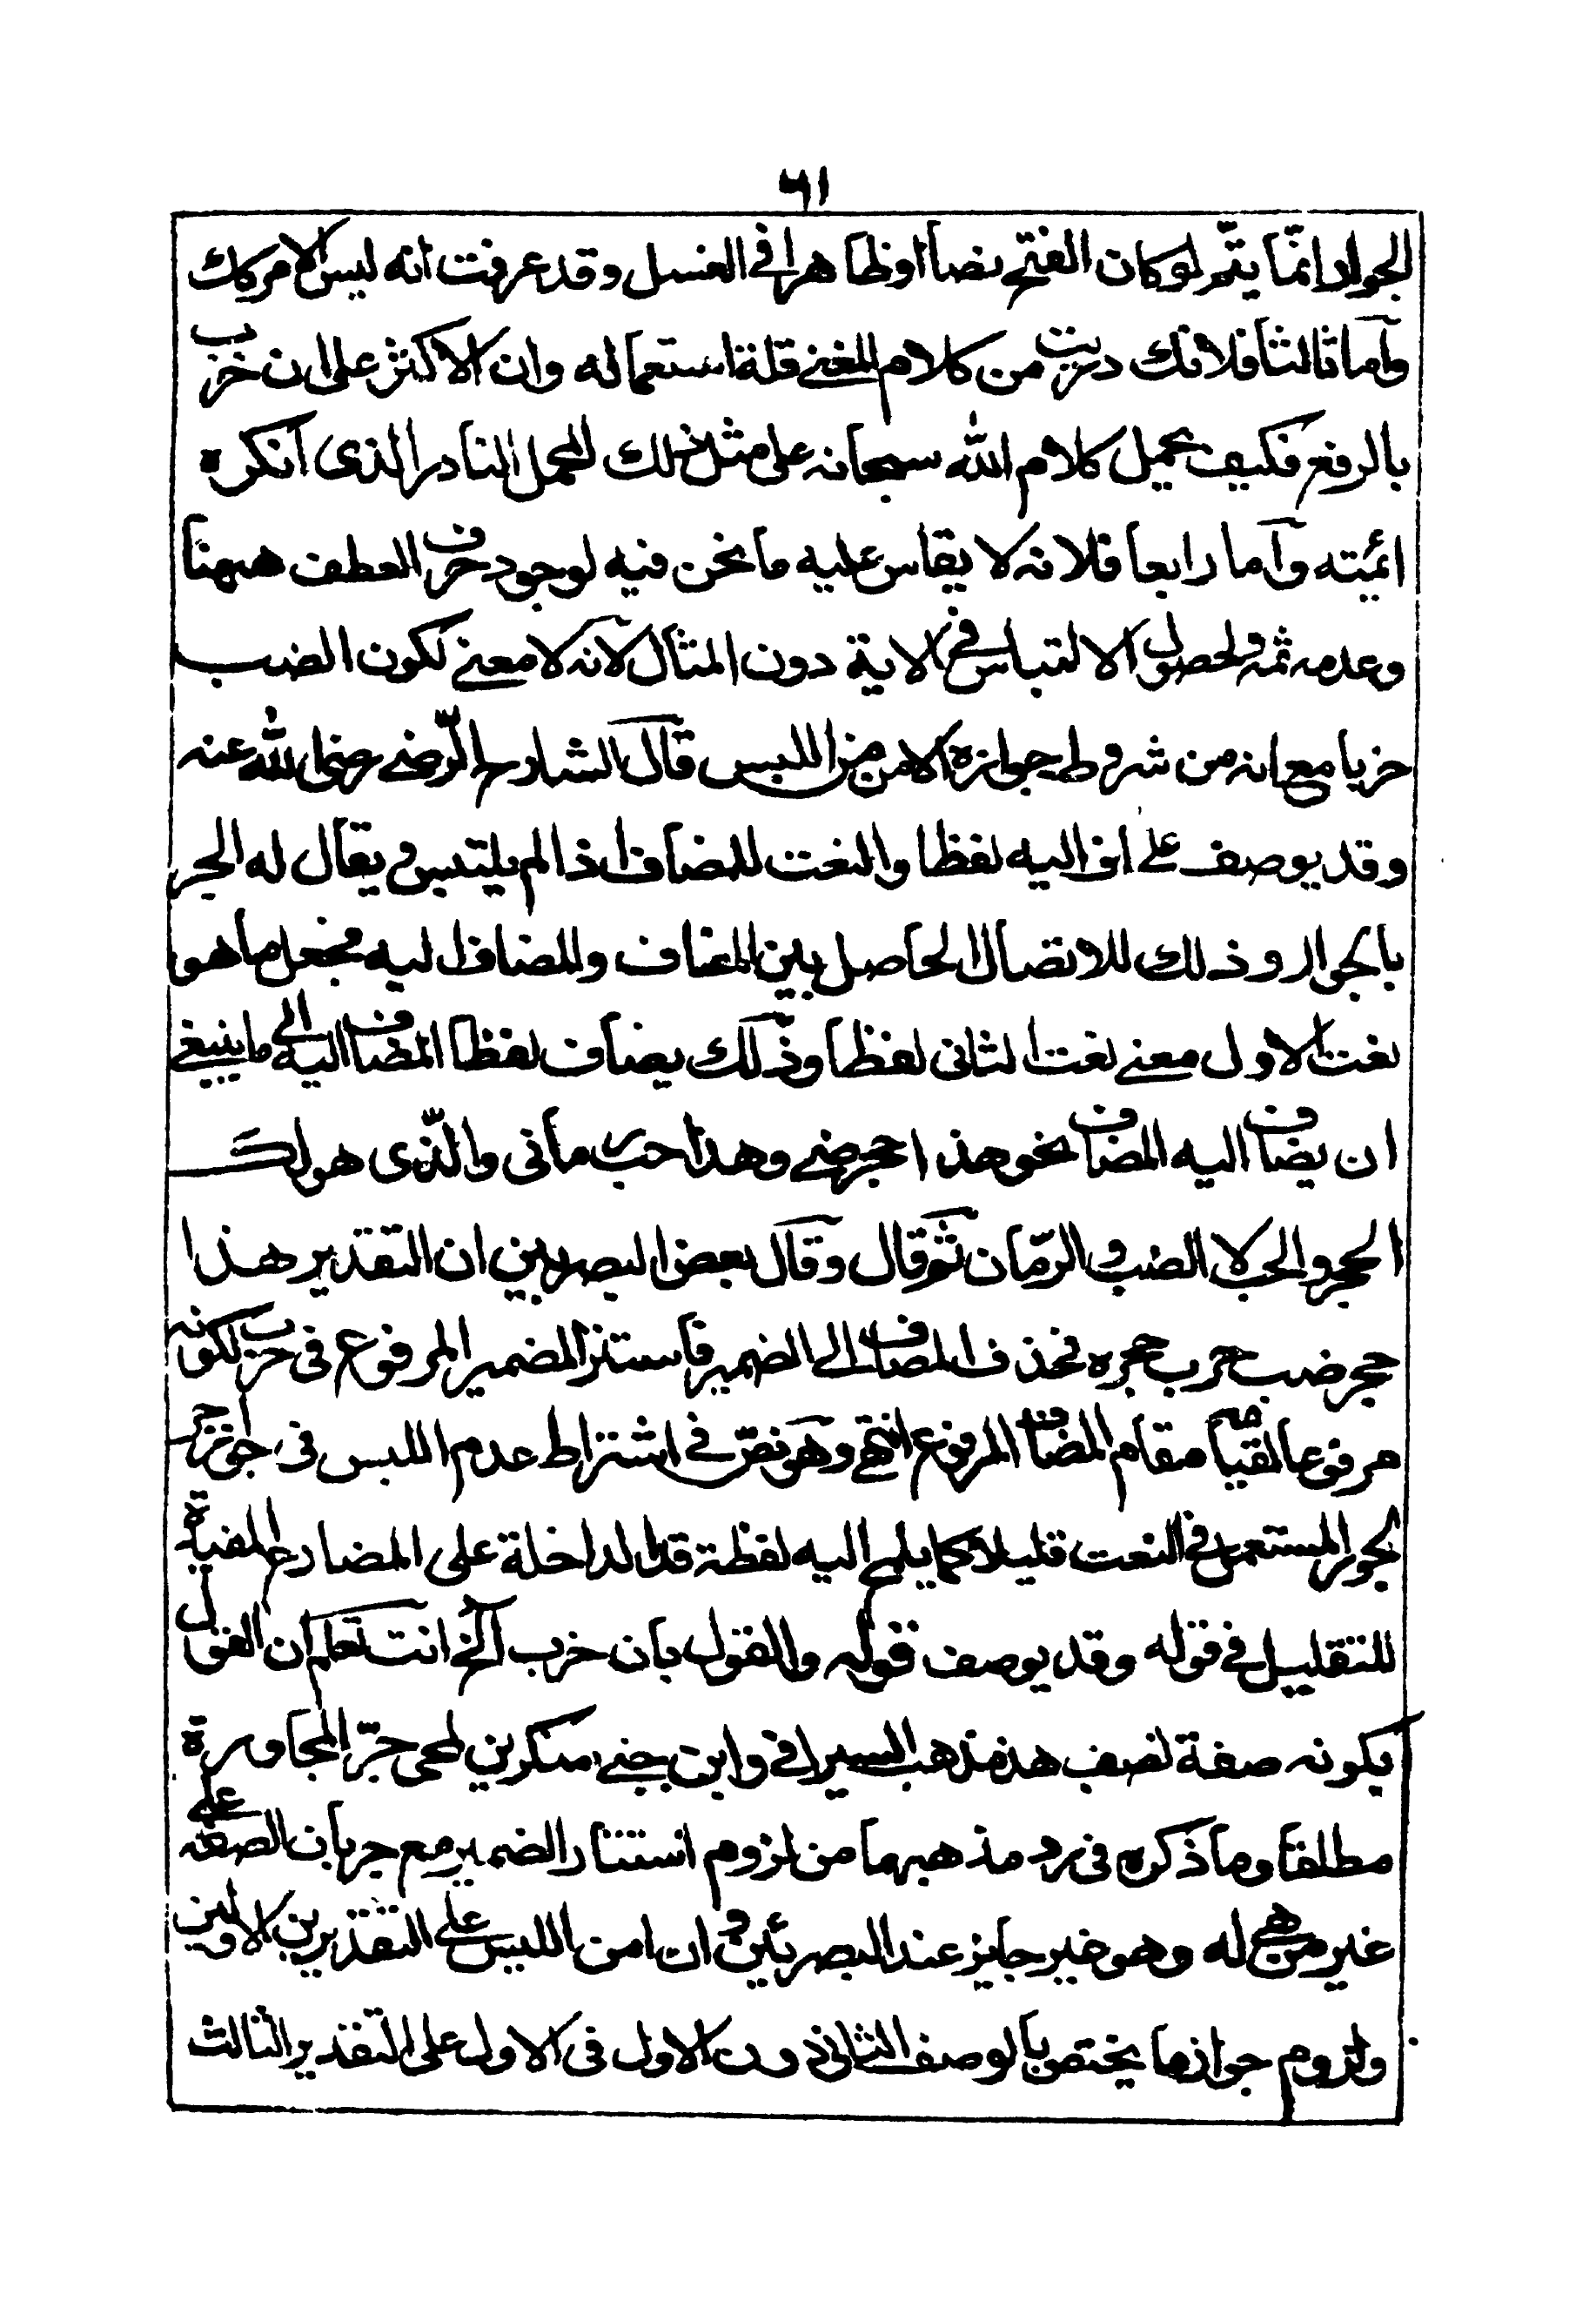 ٦١
الجوار انما يتم لو كان الفتح نصا او ظاهرا في الغسل و قد عرفت انه ليس الامر كك
وآما ثالثا فلانك دريت من كلام المغنے قلة استعماله وان الاكثر على ان خرب
بالرفع فكيف يحمل كلام الله سبحانه على مثل ذلك المحمل النادر الذى انكره
ائمته وآما رابعا فلانه لا يقاس عليه ما نحن فيه لوجود حرف العطف ههنا
وعدمه ثمه ولحصول الالتباس في الاية دون المثال لانه لا معنے لكون الضب
خربا مع انه من شروط جوازه الامن من اللبس قال الشارح الرّضے رضى الله عنه
و قد يوصف المضاف اليه لفظا والنعت للمضاف اذا لم يلتبس و يقال له الجر
بالجوار و ذلك للاتصال الحاصل بين المضاف والمضاف اليه فجعل ما هو
نعت الاول معنے نعت الثانى لفظا وذلك يضاف لفظا المضاف اليه الى ما ينبغے
ان يضاف اليه المضاف نحو هذا جحر ضبے وهذا حب رمانى والّذى هو لك
الجحر والحب لا الضب و الرمّان ثم قال وقال بعض البصريين ان التقدير هذا
جحر ضب خرب جحره فحذف المضاف الى الضمير فاستتر الضمير المرفوع فى خرب لكونه
مرفوعا لقيامه مقام المضاف المرفوع انتهى وهو نصّ في اشتراط عدم اللبس فى جواز جر
الجوار المستعمل في النعت قليلا كما يلمح اليه لفظة قد الداخلة على المضارع المفيدة
للتقليل في قوله وقد يوصف قوله والقول بان خرب آلخ انت تعلم ان القول
بكونه صفة لضب هذا مذهب السيرافي وابن جنے منكرين لمجى جرّ المجاورة
مطلقا وما ذكره فى رد مذهبهما من لزوم استتار الضمير مع جريان الصفه على
غير من هي له وهو غير جايز عند البصريين و ان امن اللبس على التقديرين الاولين
ولزوم جوازها يختص بالوصف الثانى دون الاول فى الاول على التقدير الثالث